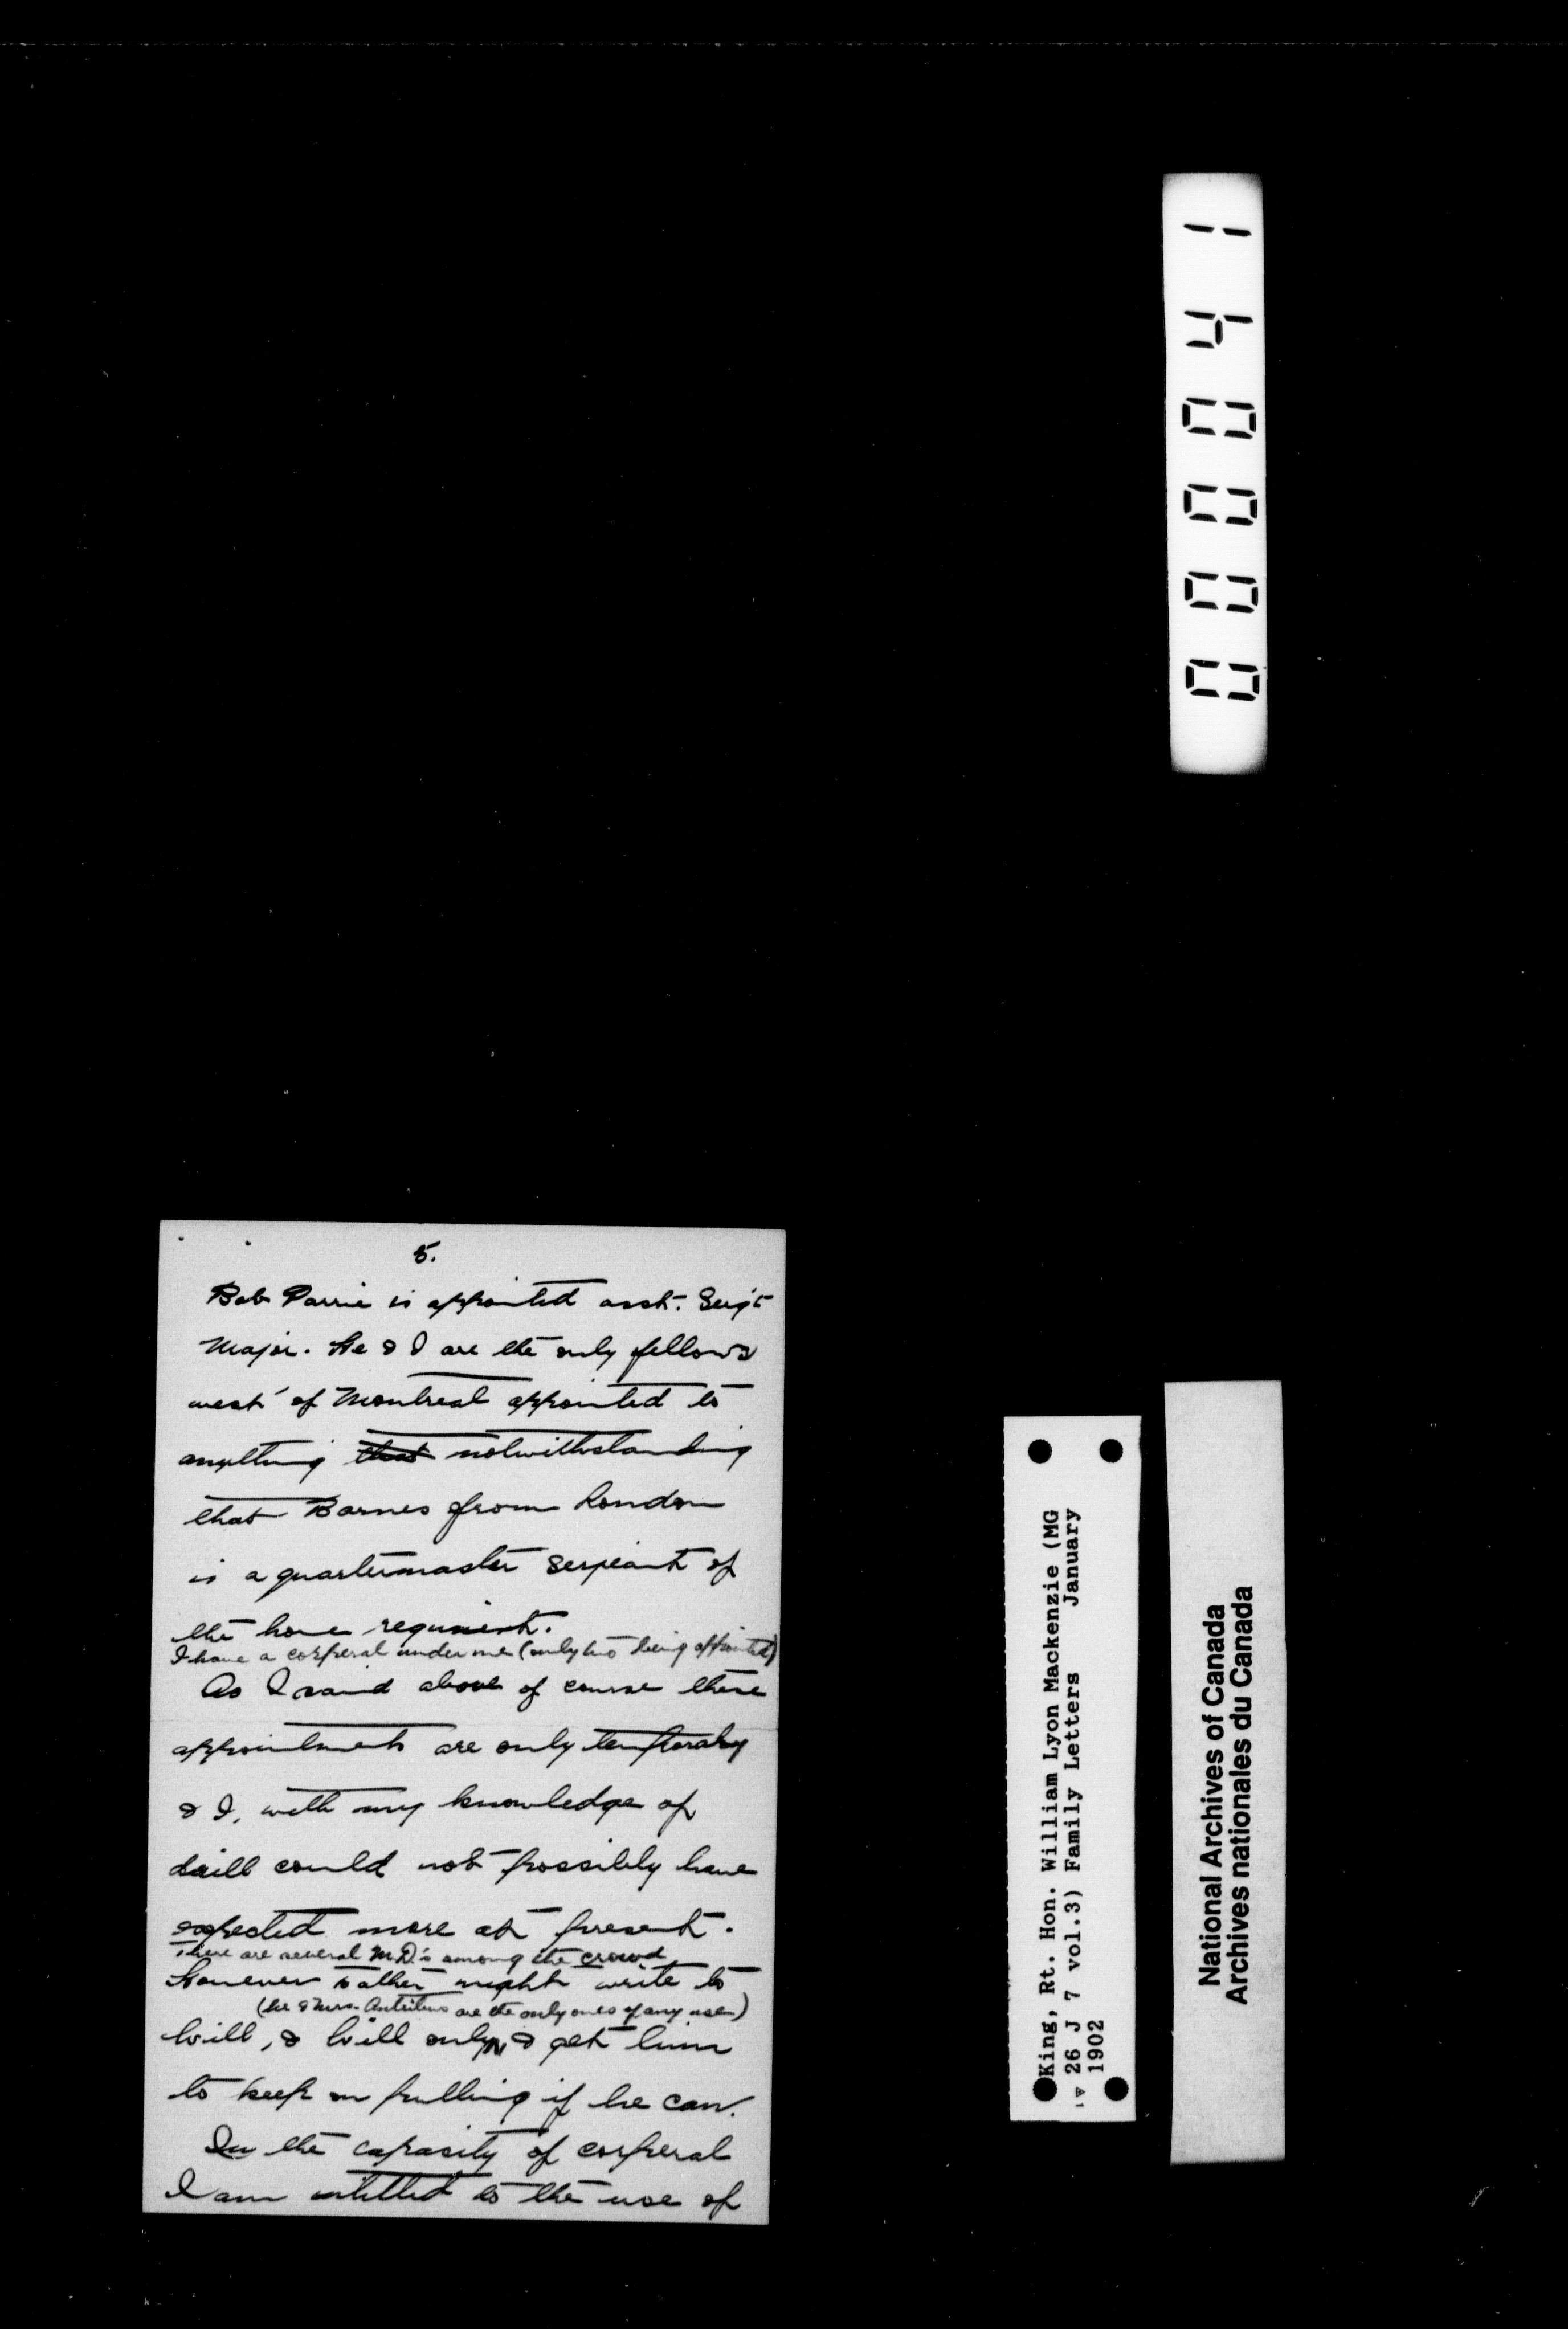 5.
Bob Parrie is appointed asst. Serg't
Major. He & I are the only fellows
west of Montreal appointed to
anything that notwithstanding
that Barnes from London
is a quartermaster sergeant of
the home regiment.
I have a corporal under me (only two being appointed)
As I said above of course these
appointments are only temporary
& I, with my knowledge of
drill could not possibly have
expected more at present.
There are several M.D.'s among the crowd
However father might write to
(he & Mrs. are the only ones of any use)
Will, & Will only, & get him
to keep on pulling if he can.
In the capacity of corporal
I am entitled to the use of
000041
King, Rt. Hon. William Lyon Mackenzie (MG
26 J 7 vol.3) Family Letters January
1902
National Archives of Canada
Archives nationales du Canada